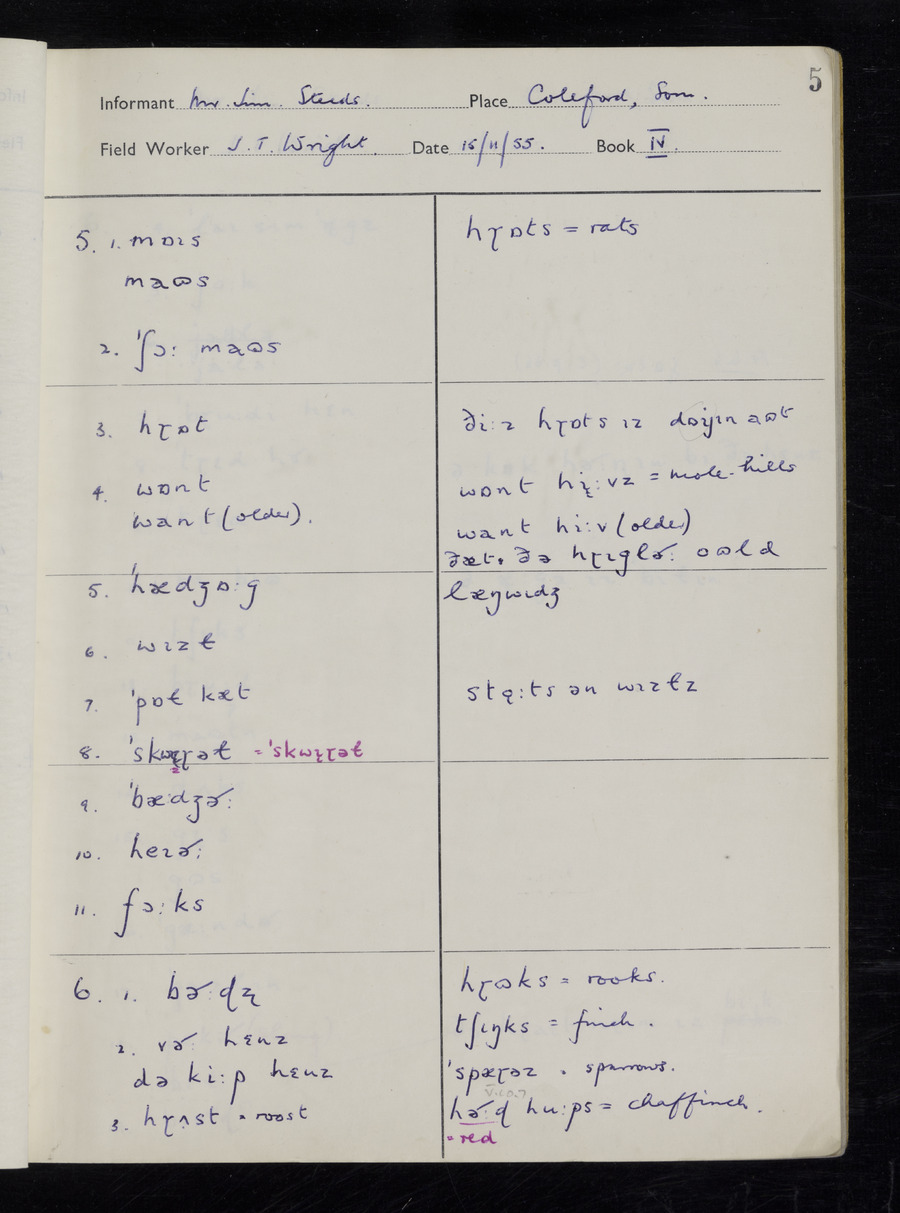 5
Informant Mr. Jim. Steeds. Place Coleford, Som.
Field Worker J. T. Wright. Date 15/11/55. Book IV.
5. 1. mɒɪs
maɷs
2. ˈʃɔ: maɷs
hɽɒts = rats
3. hɽɒt
4. wɒnt
want (older).
ði:z hɽɒts ɪz aɷt
wɒnt hi̜:vz = mole-hills
want hi:v (older)
ðæt. ðə hɽɪglɚ: oɷld
5. ˈhædʒɒ:g
6. wɪzɫ
7. ˈpɒɫ kæt
8. ˈskwɽəɫ = ˈskwɪ̜ɽəɫ
læŋwɪdʒ
stɑ̨:ts ən wɪzɫz
9. ˈbædʒɚ:
10. heɪɚ:
11. fɔ:ks
6. 1. bɚ:ɖʐ
2. vɚ: hɛnz
də ki:p hɛnz
3. hɽʌst = roost
hɽɷks = rooks.
tʃɪŋks = finch.
ˈspæɽəz = sparrows.
V.10.7
hɚ:ɖ hu:ps = chaffinch.
= red